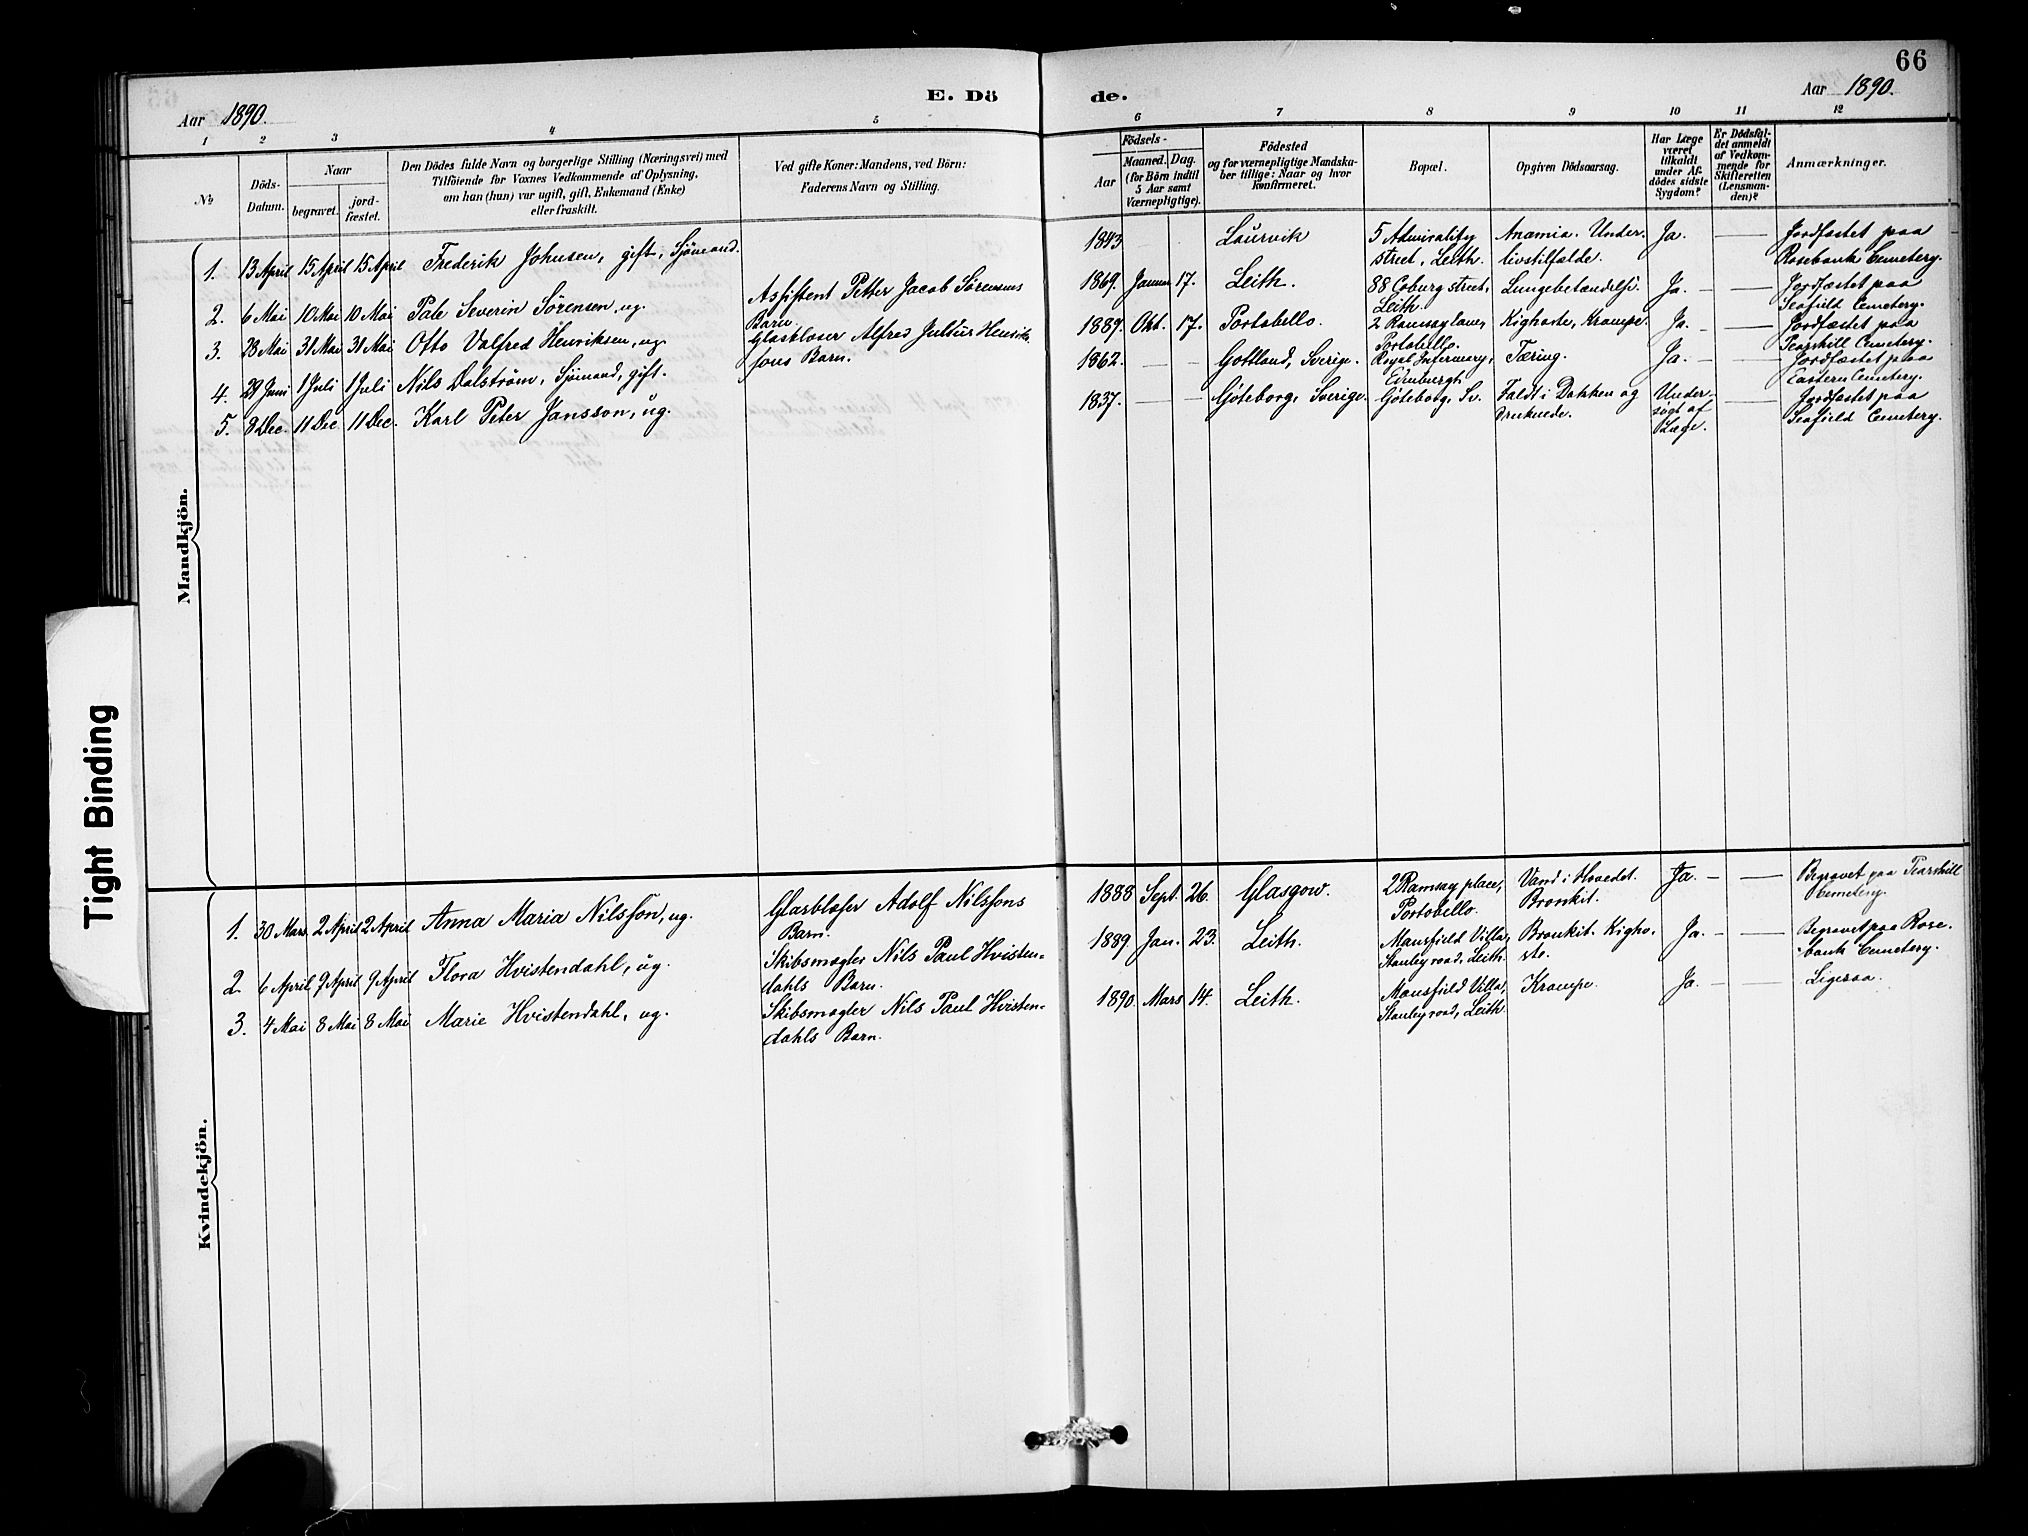 66
Aar 1890. E. Dö de. Aar 1890.
1 2 3 4 5 6 7 8 9 10 11 12
No
Döds-
Datum.
Naar
begravet.
jord-
fæstet.
Den Dödes fulde Navn og borgerlige Stilling (Næringsvei) med
Tilföiende for Voxnes Vedkommende af Oplysning,
om han (hun) var ugift, gift, Enkemand (Enke)
eller fraskilt.
Ved gifte Koner: Mandens, ved Börn:
Faderens Navn og Stilling.
Födsels-
Aar
Maaned. Dag.
(for Börn indtil
5 Aar samt
Værnepligtige).
Födested
og for værnepligtige Mandska-
ber tillige: Naar og hvor
konfirmeret.
Bopæl.
Opgiven Dödsaarsag.
Har Læge
været
tilkaldt
under Af-
dödes sidste
Sygdom?
Er Dödsfal-
det anmeldt
af Vedkom-
mende for
Skifteretten
(Lensman-
den)?
Anmærkninger.
Mandkjön.
1. 13 April 15 April 15 April Frederik Johnsen, gift, Sjömand. 1843 Laurvik 5 Admirality street, Leith. Anæmia. Under- livstilfælde. Ja. — Jordfæstet paa Rosebank Cemetery.
2. 6 Mai 10 Mai 10 Mai Pale Severin Sørensen, ug. Assistent Petter Jacob Sørensens Barn. 1869. Januar 17. Leith. 88 Coburg street, Leith. Lungebetændelse. Ja. — — Jordfæstet paa Seafield Cemetery.
3. 28 Mai 31 Mai 31 Mai Otto Valfred Henriksen, ug. Glasbloser Alfred Julius Henrik- sons Barn. 1889. Okt. 17. Portobello. 2 Ramsay lane, Portobello. Kighoste, Krampe. Ja. — — Jordfæstet paa Pearshill Cemetery.
4. 29 Juni 1 Juli 1 Juli Nils Dalström, Sjömand, gift. 1862. — — Gottland, Sverige. Royal Infermary, Edinburgh Tæring. Ja. — — Jordfæstet paa Eastern Cemetery.
5. 8 Dec. 11 Dec. 11 Dec. Karl Peter Jansson, ug. 1837. — — Göteborg, Sverige. Göteborg, Sv. Faldt i Dokken og druknede. Under- søgt af Læge. — Jordfæstet paa Seafield Cemetery.
Kvindekjön.
1. 30 Mars 2 April 2 April Anna Maria Nilsson, ug. Glasblaser Adolf Nilssons Barn. 1888 Sept. 26. Glasgow. 2 Ramsay place, Portobello. Vand i Hovedet. Bronkit. Ja. — — Begravet paa Pearshill Cemeterg.
2. 6 April 9 April 9 April Flora Hvistendahl, ug. Skibsmægler Nils Paul Hvisten- dahls Barn. 1889 Jan. 23. Leith. Mansfield Villa, Stanley road, Leith. Bronkit. Kigho- ste. Ja. — — Begravet paa Rose- bank Cemetery.
3. 4 Mai 8 Mai 8 Mai Marie Hvistendahl, ug. Skibsmægler Nils Paul Hvisten- dahls Barn. 1890. Mars 14. Leith. Mansfield Villa, Stanley road, Leith. Krampe. Ja. — — Ligesaa.
Tight Binding